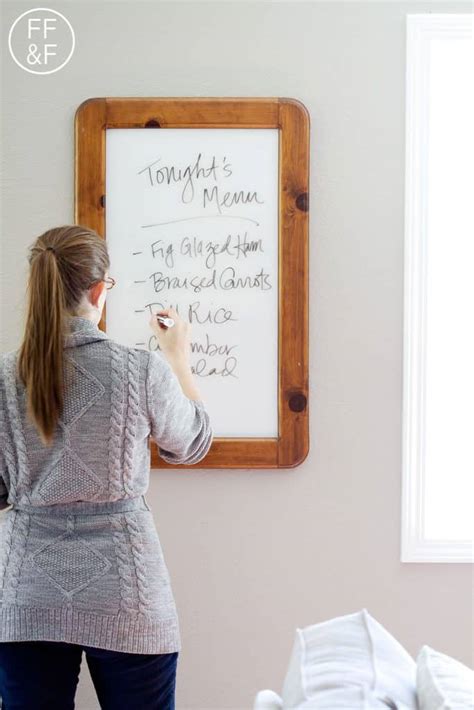 FF
&F
Tonight's
Menu
- Fig Glazed Ham
- Braised Carrots
- Dill Rice
-